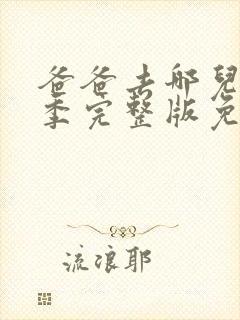 爸爸去哪兒
季完整版免
流浪耶